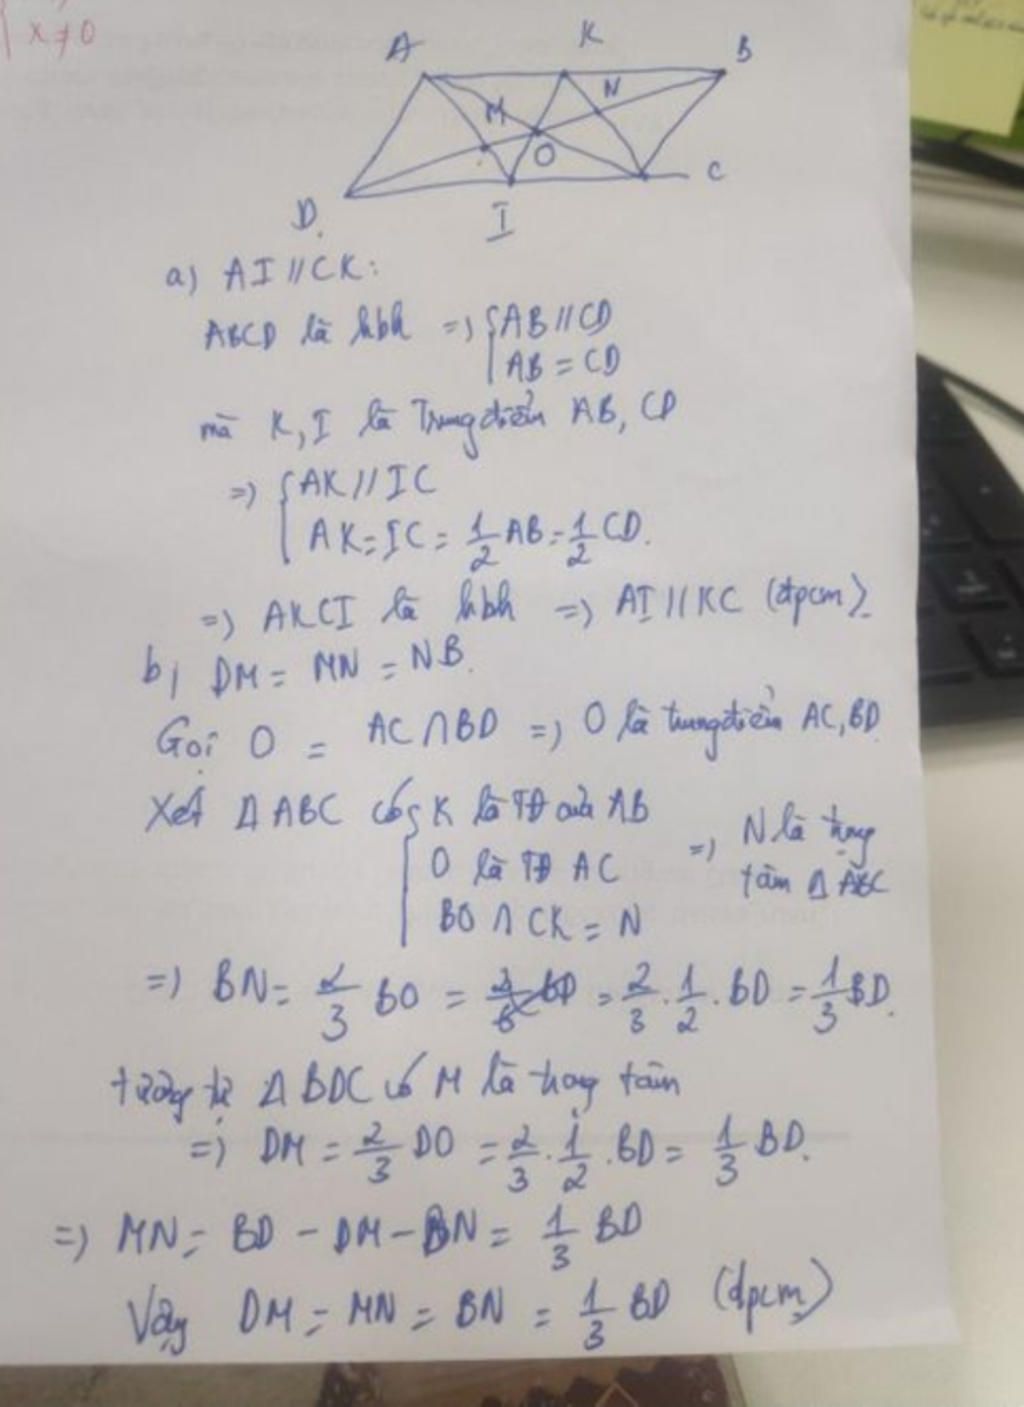 x ≠ 0
A K B
M N
O
D. I C
a) AI // CK:
ABCD là hbh => { AB // CD
AB = CD
mà K, I là Trung điểm AB, CD
=> { AK // IC
AK = IC = 1/2 AB = 1/2 CD.
=> AKCI là hbh => AI // KC (đpcm).
b) DM = MN = NB.
Gọi O = AC ∩ BD => O là trung điểm AC, BD
Xét Δ ABC có { K là TĐ của AB
O là TĐ AC => N là trọng
BO ∩ CK = N tâm Δ ABC
=> BN = 2/3 BO = 2/3 . 1/2 . BD = 1/3 BD.
tương tự Δ BDC có M là trọng tâm
=> DM = 2/3 DO = 2/3 . 1/2 . BD = 1/3 BD.
=> MN = BD - DM - BN = 1/3 BD
Vậy DM = MN = BN = 1/3 BD (đpcm)